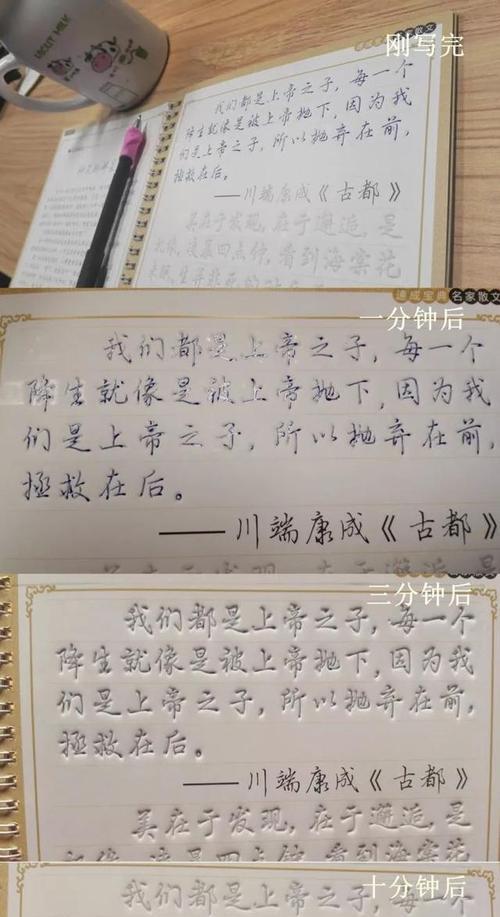 刚写完
我们都是上帝之子，每一个
降生就像是被上帝抛下，因为我
们是上帝之子，所以抛弃在前，
拯救在后。
——川端康成《古都》
美在于发现，在于邂逅，是
机缘，凌晨四点钟，看到海棠花
未眠
速成宝典 名家散文
一分钟后
我们都是上帝之子，每一个
降生就像是被上帝抛下，因为我
们是上帝之子，所以抛弃在前，
拯救在后。
——川端康成《古都》
三分钟后
我们都是上帝之子，每一个
降生就像是被上帝抛下，因为我
们是上帝之子，所以抛弃在前，
拯救在后。
——川端康成《古都》
美在于发现，在于邂逅，是
机缘，凌晨四点钟，看到海棠花
十分钟后
我们都是上帝之子，每一个